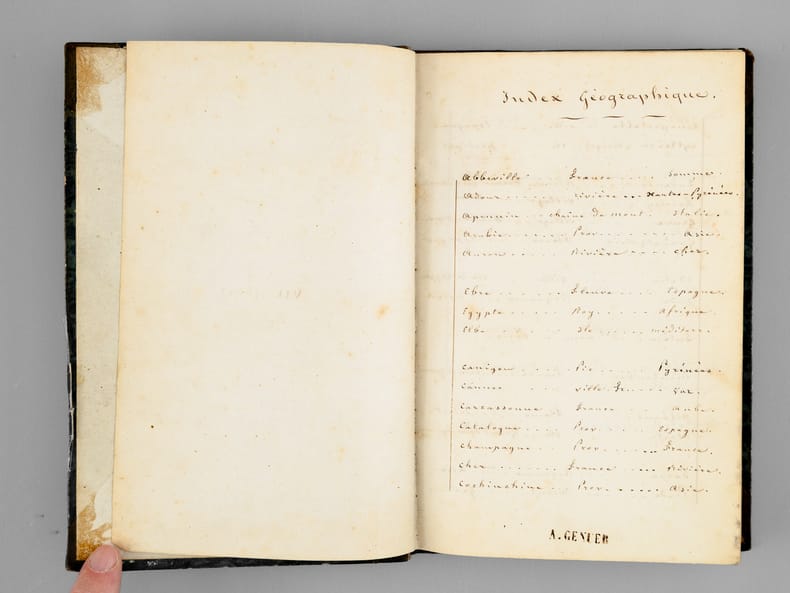 Index Géographique.
Abbeville France Somme.
Adour rivière Hautes Pyrénées.
Apennin chaine de mont. Italie.
Arabie Prov. Asie.
Auron Rivière Cher.
Ebre Fleuve Espagne.
Egypte Roy. Afrique.
Elbe Ile méditerr.
Canigou Pic Pyrénées.
Cannes ville Fr. Var.
Carcassonne France Aude.
Catalogne Prov. Espagne.
Champagne Prov. France.
Cher France Rivière.
Cochinchine Prov. Asie.
A. GENTER